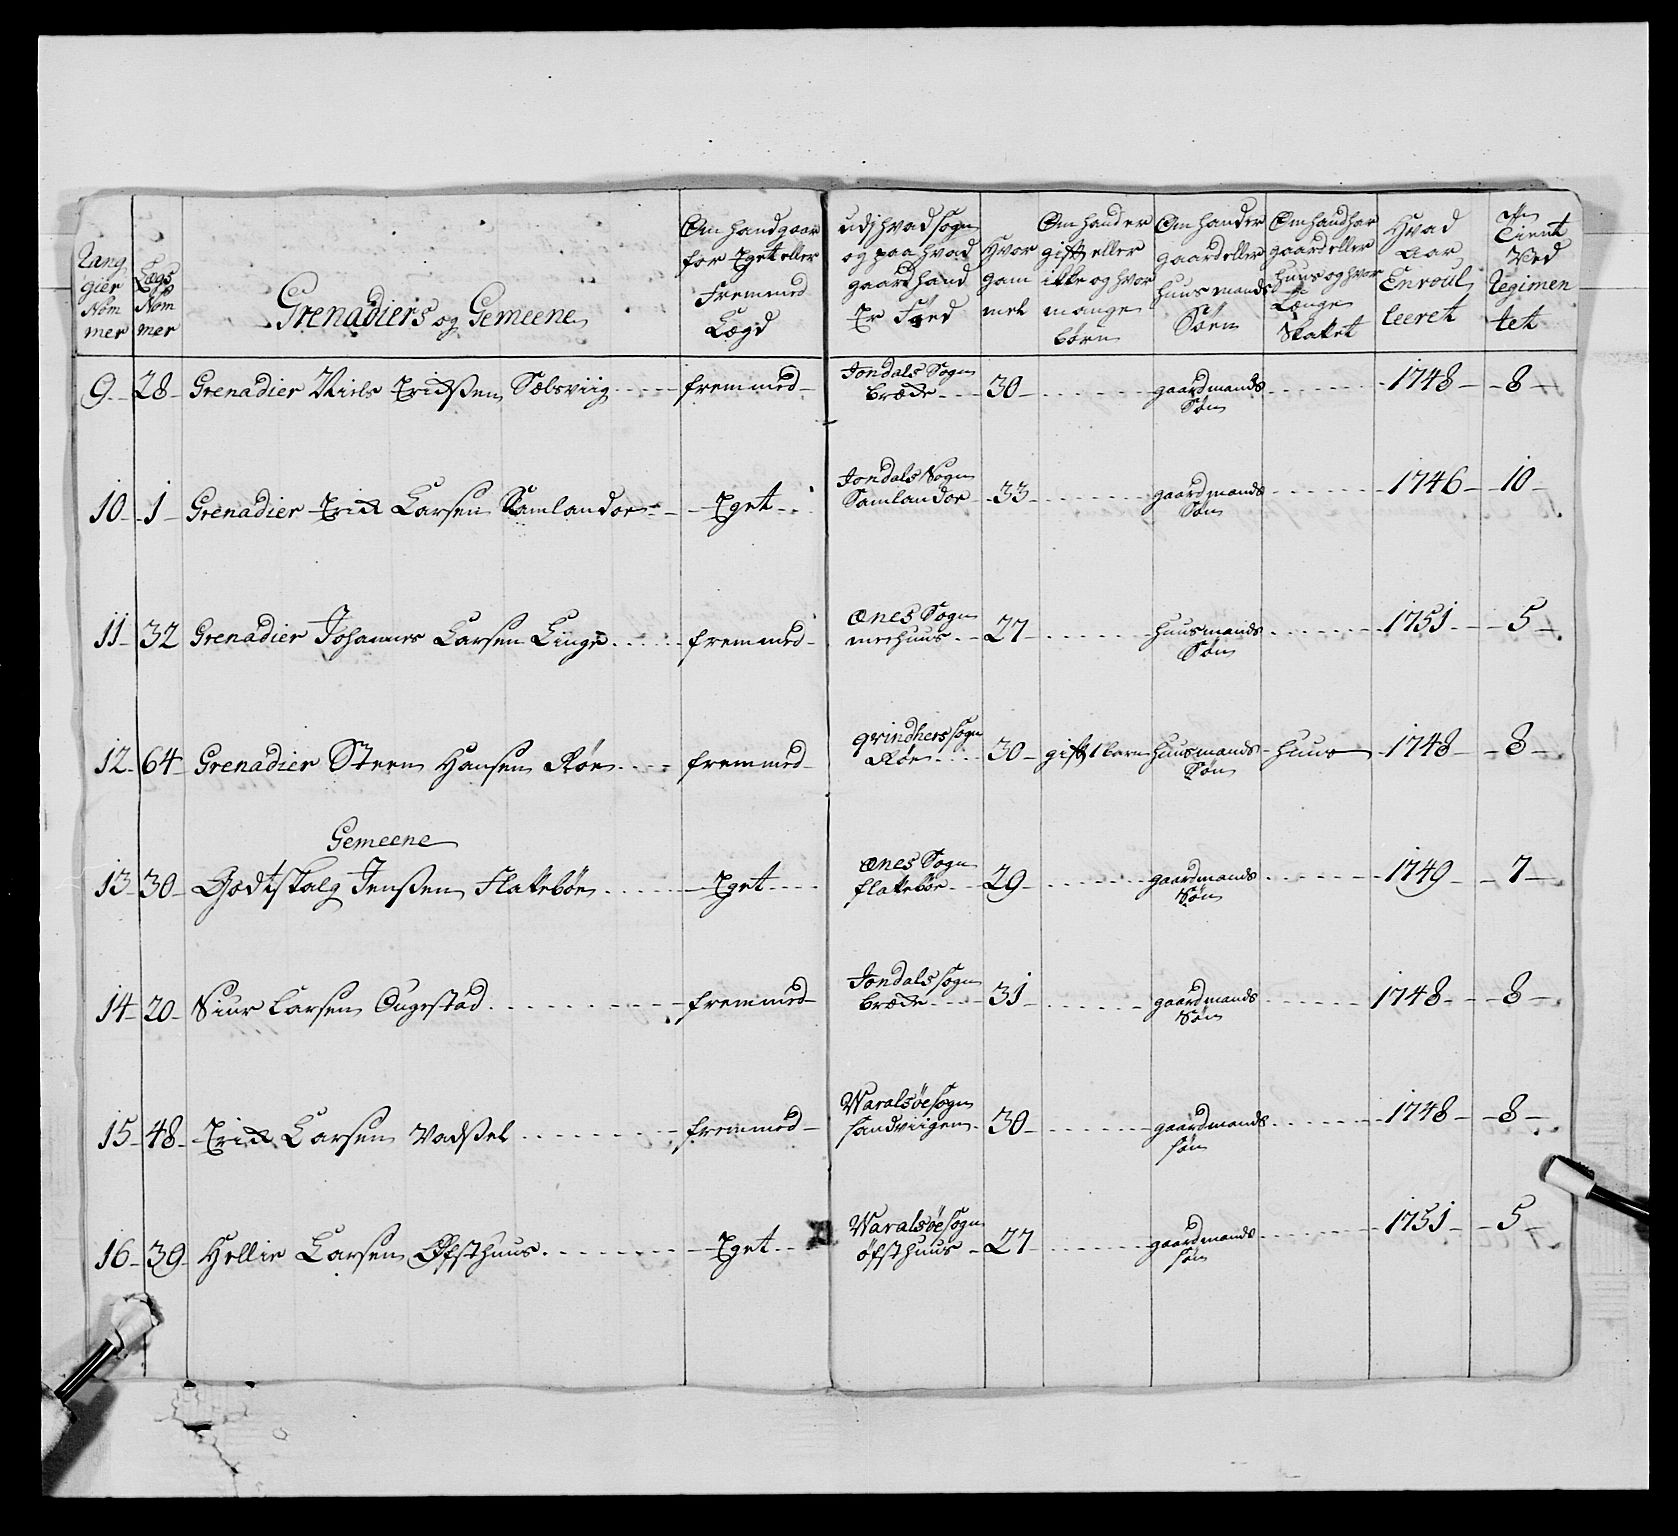 Rang
gier
Nom
mer
Lægs
Nom
mer
Grenadiers og Gemeene
Om hand gaar
for Eget eller
Fremmed
Lægd
udj hvad sogn
og paa hvad
gaard hand
Er Fød
Hvor
gam
mel
Om hand er
gift eller
ikke og hvor
mange
børn
Om hand er
gaard eller
huusmands
Søn
Om hand har
gaard eller
huus og hvor
Længe
Skattet
Hvad
Aar
Enroul
leeret
Tient
Ved
Regimen
tet
9 28 Grenadier Niels Erichsen Sælsviig fremmed Jondals Sogn Bræde 30 gaardmands Søn 1748 8
10 1 Grenadier Erich Larsen Samlandor Eget Jondals Sogn Samlandor 33 gaardmands Søn 1746 10
11 32 Grenadier Johannes Larsen Linge fremmed Ænes Sogn 27 huusmands Søn 1751 5
12 64 Grenadier Steen Hansen Røe fremmed qvindhers sogn Røe 30 gift 1 barn huusmands Søn huus 1748 8
Gemeene
13 30 Godtskalg Jenssen Flattebøe Eget Ænes Sogn flattebøe 29 gaardmands Søn 1749 7
14 20 Siur Larsen Augestad fremmed Jondals sogn Bræde 31 gaardmands Søn 1748 8
15 48 Erich Larsen Vadssel fremmed Waralsøe sogn sandviigen 30 gaardmands søn 1748 8
16 39 Hellie Larsen Øfsthuus Eget Waralsøe sogn øfsthuus 27 gaardmands søn 1751 5